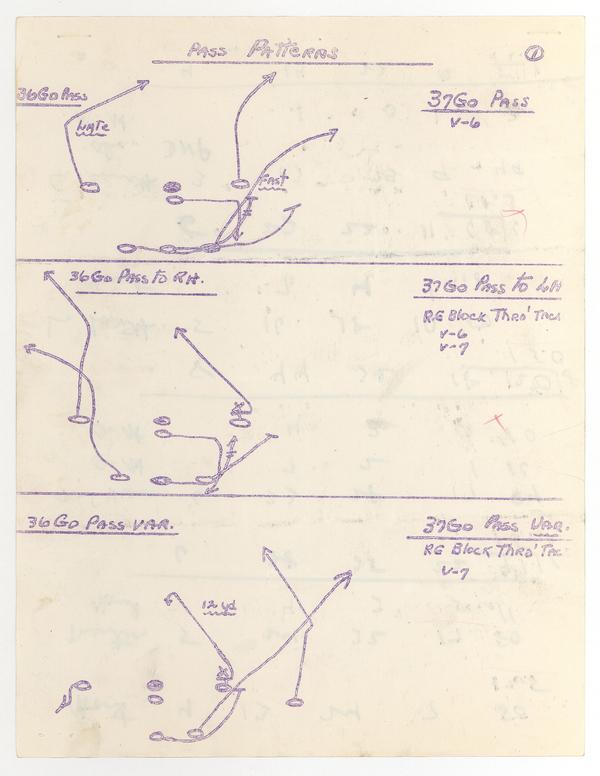 PASS PATTERNS
1
36 GO PASS
37 GO PASS
V-6
LATE
FAST
36 GO PASS TO RH.
37 GO PASS TO LH
RG BLOCK THRO' TACK
V-6
V-7
36 GO PASS VAR.
37 GO PASS VAR.
RG BLOCK THRO' TAC
V-7
12 yd